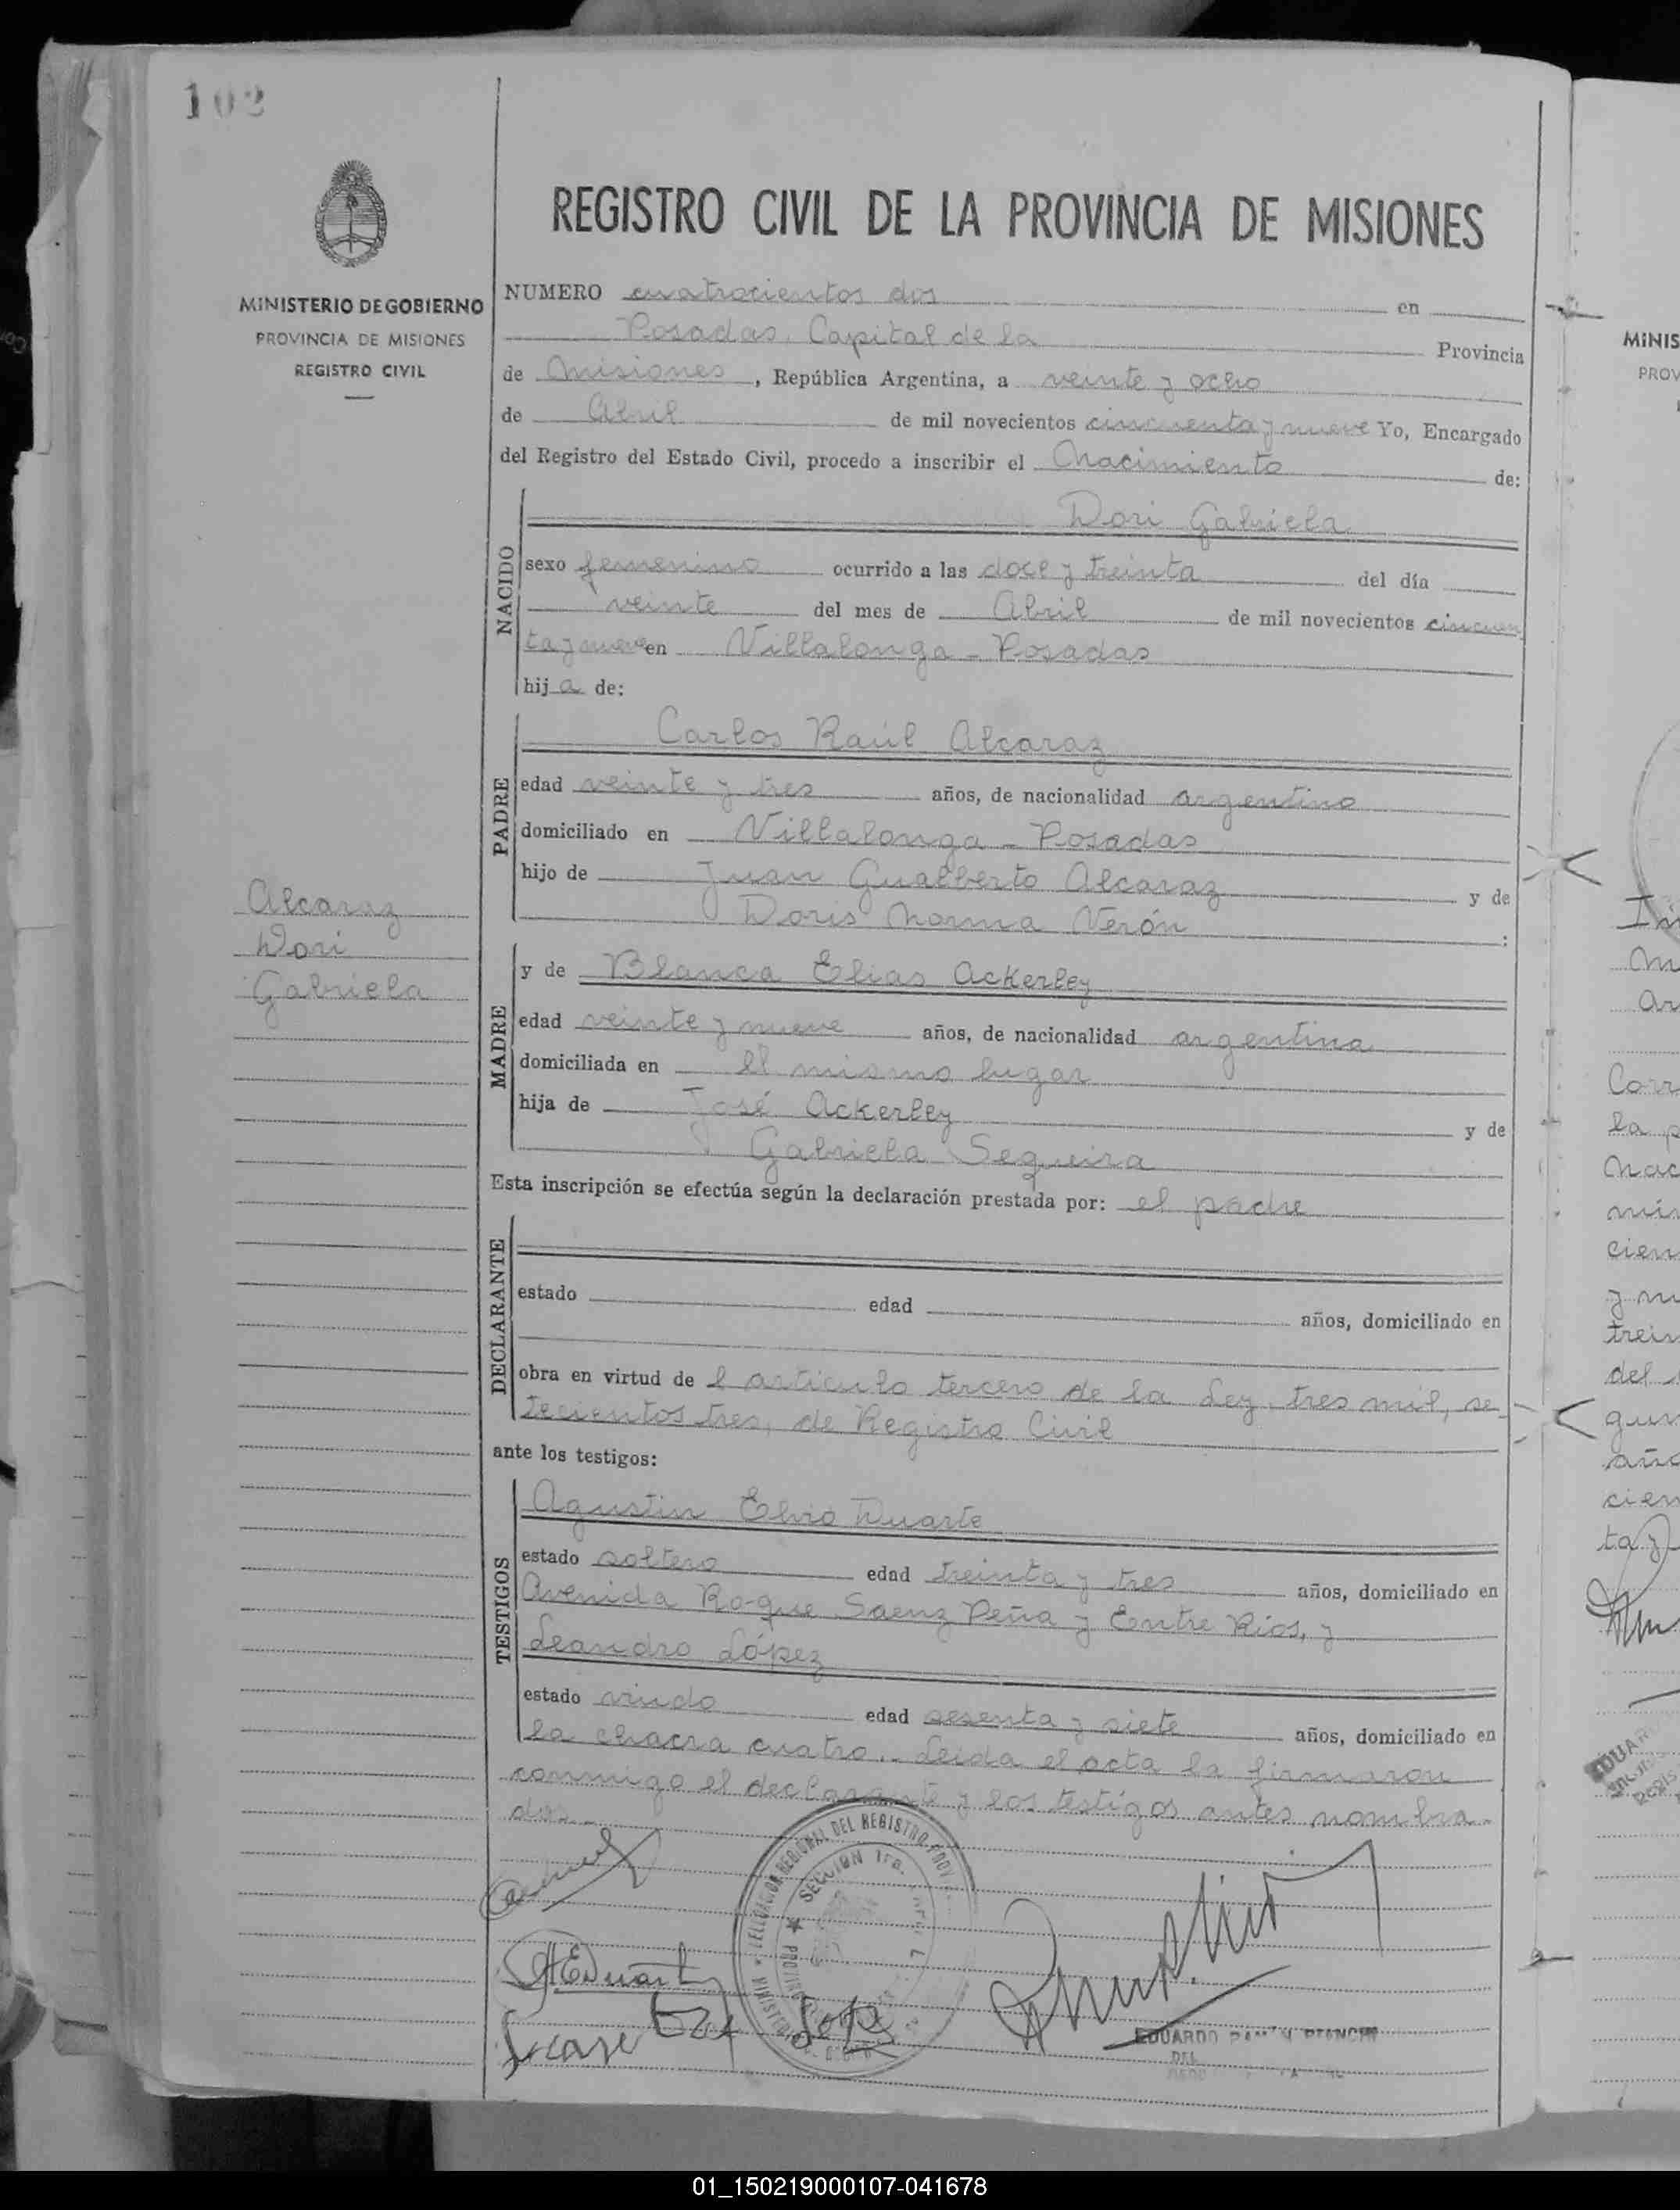 102
MINISTERIO DE GOBIERNO
PROVINCIA DE MISIONES
REGISTRO CIVIL
REGISTRO CIVIL DE LA PROVINCIA DE MISIONES
NUMERO cuatrocientos dos en
Posadas, Capital de la Provincia
de Misiones, República Argentina, a veinte y ocho
de Abril de mil novecientos cincuenta y nueve Yo, Encargado
del Registro del Estado Civil, procedo a inscribir el Nacimiento de:
NACIDO
Dori Gabriela
sexo femenino ocurrido a las doce y treinta del día
veinte del mes de Abril de mil novecientos cincuen
ta y nueve en Villalonga - Posadas
hija de:
PADRE
Carlos Raúl Alcaraz
edad veinte y tres años, de nacionalidad argentino
domiciliado en Villalonga - Posadas
hijo de Juan Gualberto Alcaraz y de
Doris Norma Verón :
Alcaraz
Dori
Gabriela
MADRE
y de Blanca Elias Ackerley
edad veinte y nueve años, de nacionalidad argentina
domiciliada en el mismo lugar
hija de José Ackerley y de
Gabriela Sequeira
Esta inscripción se efectúa según la declaración prestada por: el padre
DECLARANTE
estado edad años, domiciliado en
obra en virtud de l articulo tercero de la Ley tres mil, se
tecientos tres, de Registro Civil
ante los testigos:
TESTIGOS
Agustin Elvio Duarte
estado soltero edad treinta y tres años, domiciliado en
Avenida Roque Saenz Peña y Entre Rios, y
Leandro López
estado viudo edad sesenta y siete años, domiciliado en
la chacra cuatro.- Leida el acta la firmaron
conmigo el declarante y los testigos antes nombra-
dos.-
DEL REGISTRO PROV
SECCION 1ra.
AEDuarte
Lopez
EDUARDO RAMÓN BIANCHI
DEL
MINIS
PROV
01_150219000107-041678